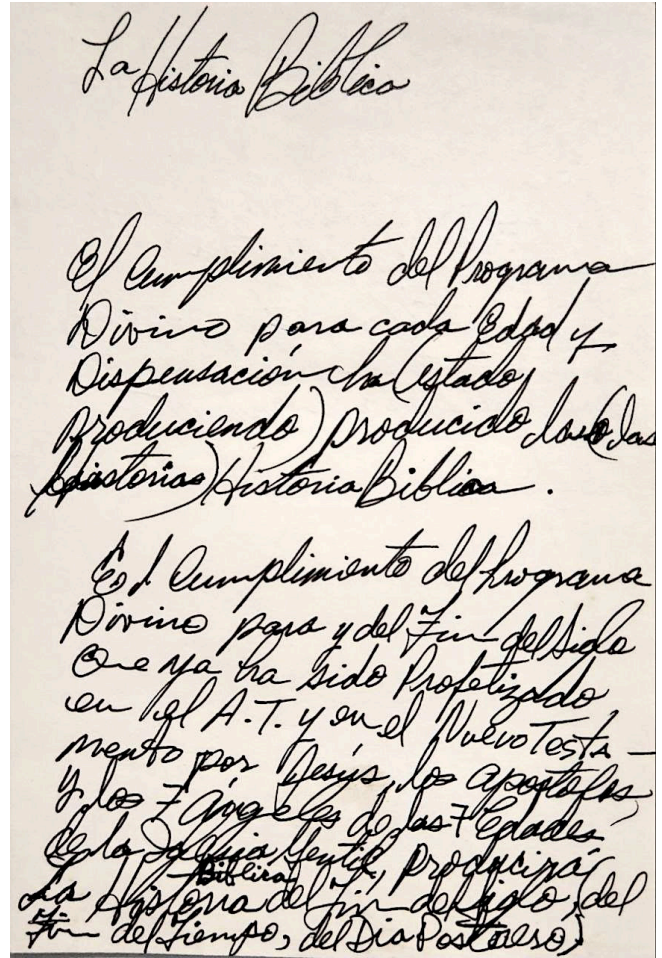 La Historia Bíblica
El Cumplimiento del Programa
Divino para cada Edad y
Dispensación ha (estado
produciendo) producido la o (las
historias) Historia Bíblica.
El Cumplimiento del Programa
Divino para y del Fin del Siglo
Que ya ha sido Profetizado
en el A.T. y en el Nuevo Testa-
mento por Jesús, los apóstoles
y los 7 ángeles de las 7 Edades
de la Iglesia Gentil, producirá
Bíblica
La Historia del Fin del Siglo, (del
Fin del Tiempo, del Día Postrero)